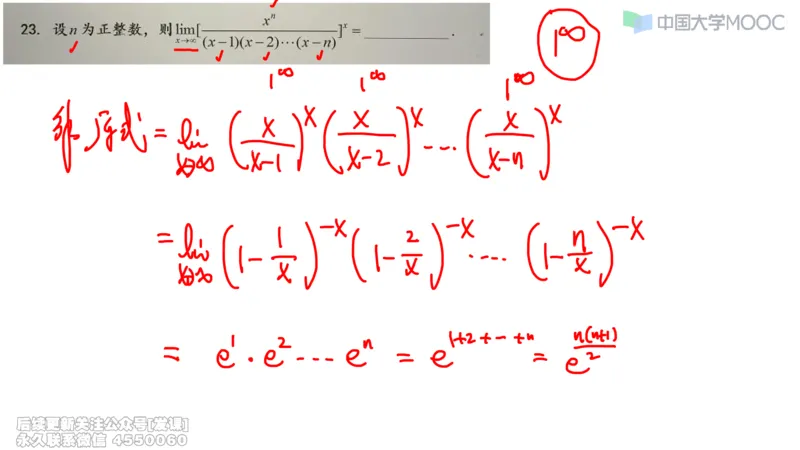 23. 设n为正整数，则lim[x^n/((x−1)(x−2)⋯(x−n))]^x = ________ .
x→∞
1^∞
中国大学MOOC
1^∞ 1^∞ 1^∞
解 原式 = lim x→∞ (x/(x-1))^x (x/(x-2))^x ⋯ (x/(x-n))^x
= lim x→∞ (1-1/x)^-x (1-2/x)^-x ⋯ (1-n/x)^-x
= e^1 · e^2 ⋯ e^n = e^(1+2+⋯+n) = e^(n(n+1)/2)
后续更新关注公众号[发课]
永久联系微信 4550060